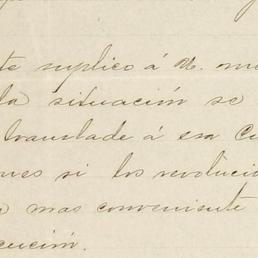 te suplico á U. me
la situación se
translade á esa Ci
nes si los revoluci
mas conveniente